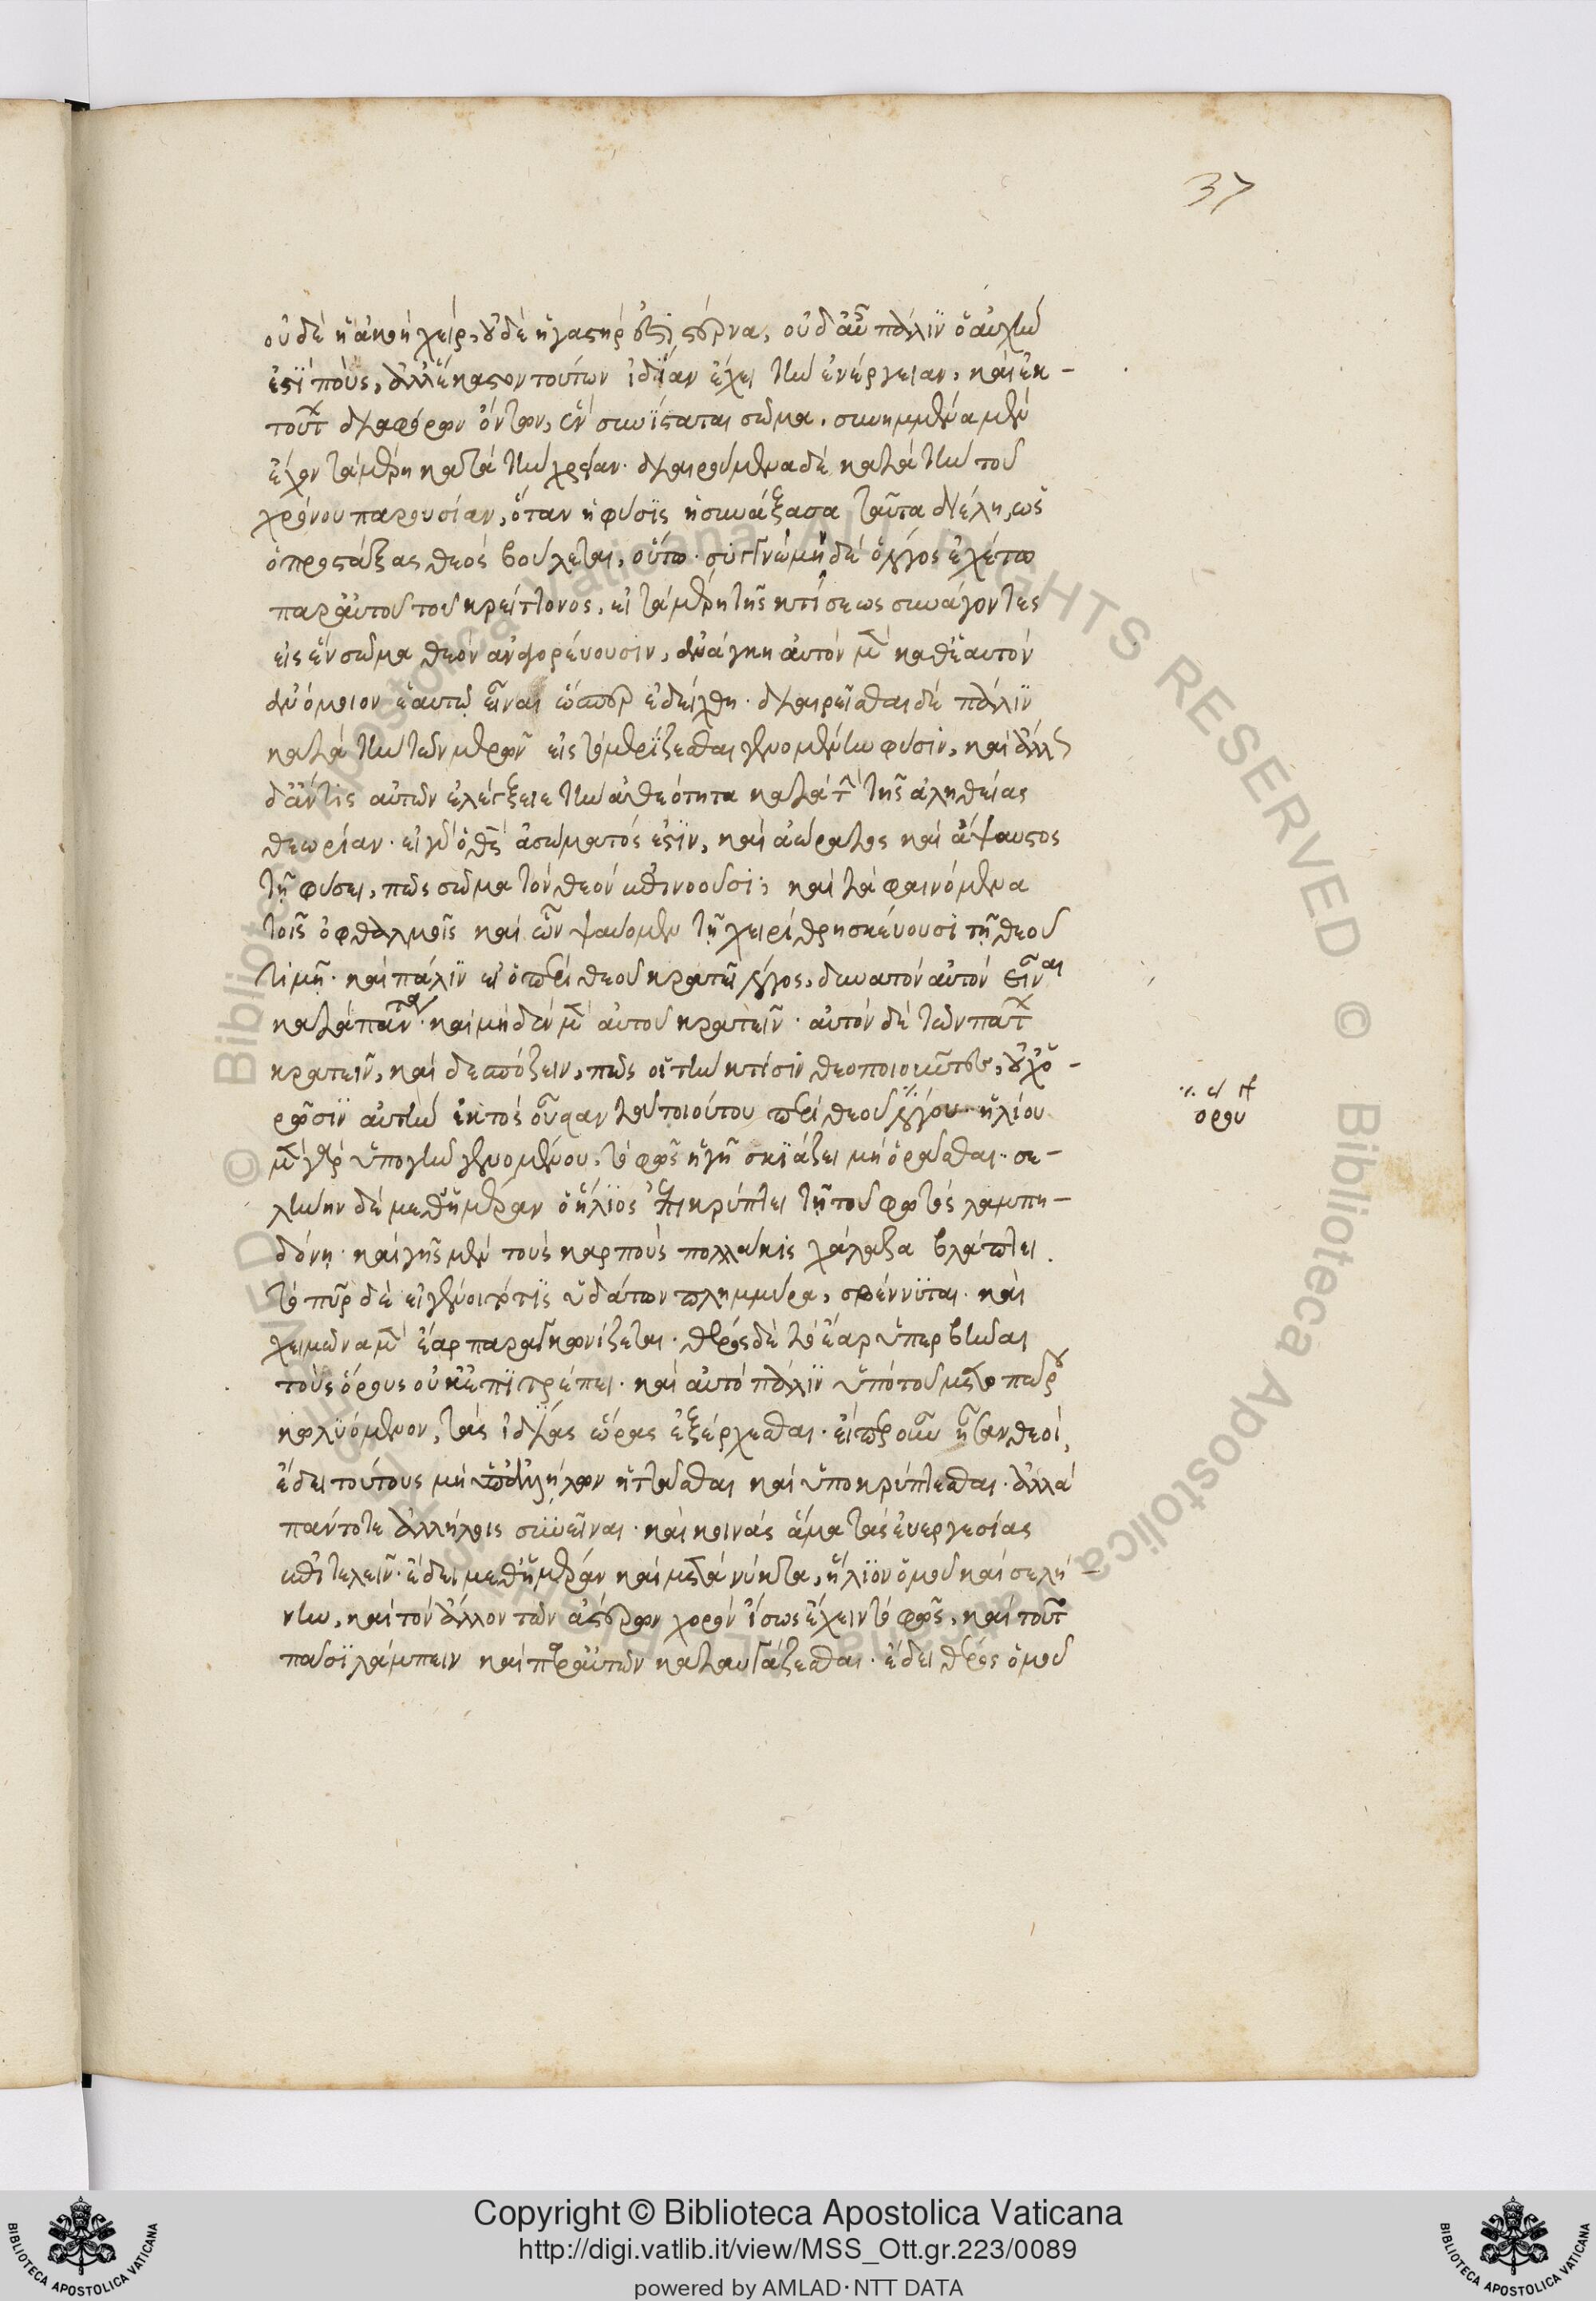 37
οὐδὲ ἡ ἀκοὴ χείρ, οὐδὲ ἡ γαστήρ ἐστι στέρνα, οὐδ' αὖ πάλιν ὁ αὐχὴν
ἐστὶ πούς, ἀλλ' ἕκαστον τούτων ἰδίαν ἔχει τὴν ἐνέργειαν, καὶ ἐκ-
τούτων διαφόρων ὄντων, ἓν συνίσταται σῶμα, συνημμένα μὲν
ἔχον τὰ μέρη κατὰ τὴν χρείαν· διαιρούμενα δὲ κατὰ τὴν τοῦ
χρόνου παρουσίαν, ὅταν ἡ φύσις ἡ συνάξασα ταῦτα διέλη, ὡς
ὁ προστάξας θεὸς βούλεται, οὕτω· συγγνώμην δὲ ὁ λόγος ἐχέτω
παρ' αὐτοῦ τοῦ κρείττονος, εἰ τὰ μέρη τῆς κτίσεως συνάγοντες
εἰς ἓν σῶμα θεὸν ἀναγορεύουσιν, ἀνάγκη αὐτὸν μὲν καθ' ἑαυτὸν
ἀνόμοιον ἑαυτῷ εἶναι ὥσπερ ἐδείχθη· διαιρεῖσθαι δὲ πάλιν
κατὰ τὴν τῶν μερῶν εἰς τὸ μερίζεσθαι γενομένην φύσιν, καὶ ἄλλως
δ' ἄν τις αὐτῶν ἐλέγξειε τὴν ἀθεότητα κατὰ τὴν τῆς ἀληθείας
θεωρίαν· εἰ γὰρ ὁ θεὸς ἀσώματός ἐστιν, καὶ ἀόρατος καὶ ἄψαυστος
τῇ φύσει, πῶς σῶμα τὸν θεὸν ἐπινοοῦσι; καὶ τὰ φαινόμενα
τοῖς ὀφθαλμοῖς καὶ ὧν ψαύομεν τῇ χειρὶ θρησκεύουσι τῇ θεοῦ
τιμῇ· καὶ πάλιν εἰ ὁ περὶ θεοῦ κρατεῖ λόγος, δυνατὸν αὐτὸν εἶναι
κατὰ πάντα· καὶ μηδὲν μὲν αὐτοῦ κρατεῖν· αὐτὸν δὲ τῶν πάντων
κρατεῖν, καὶ δεσπόζειν, πῶς οἱ τὴν κτίσιν θεοποιοῦντες, οὐχ ὁ-
ρῶσιν αὐτὴν ἐκτὸς οὖσαν τοῦ τοιούτου περὶ θεοῦ λόγου· ἡλίου
μὲν γὰρ ὑπὸ γῆν γενομένου, τὸ φῶς ἡ γῆ σκιάζει μὴ ὁρᾶσθαι· σε-
λήνην δὲ μεθ' ἡμέραν ὁ ἥλιος ἐπικρύπτει τῇ τοῦ φωτὸς λαμπη-
δόνι· καὶ γῆς μὲν τοὺς καρποὺς πολλάκις χάλαζα βλάπτει.
τὸ πῦρ δὲ εἰ γένοιτό τις ὑδάτων πλημμύρα, σβέννυται· καὶ
χειμῶνα μὲν ἔαρ παραγκωνίζεται· θέρος δὲ τὸ ἔαρ ὑπερβῆναι
τοὺς ὅρους οὐκ ἐπιτρέπει· καὶ αὐτὸ πάλιν ὑπὸ τοῦ μετοπώρου
κωλυόμενον, τὰς ἰδίας ὥρας ἐξέρχεσθαι· εἴπερ οὖν ἦσαν θεοὶ,
ἔδει τούτους μὴ ὑπ' ἀλλήλων ἡττᾶσθαι καὶ ὑποκρύπτεσθαι· ἀλλὰ
πάντοτε ἀλλήλοις συνεῖναι· καὶ κοινὰς ἅμα τὰς ἐνεργεσίας
ἐπιτελεῖν· ἔδει μεθ' ἡμέραν καὶ μετὰ νύκτα, ἥλιον ὁμοῦ καὶ σελή-
νην, καὶ τὸν ἄλλον τῶν ἀστέρων χορὸν ἴσως ἔχειν τὸ φῶς, καὶ τοῦτο
πᾶσι λάμπειν καὶ παρ' αὐτῶν καταυγάζεσθαι· ἔδει θέρος ὁμοῦ
Copyright © Biblioteca Apostolica Vaticana
http://digi.vatlib.it/view/MSS_Ott.gr.223/0089
powered by AMLAD·NTT DATA